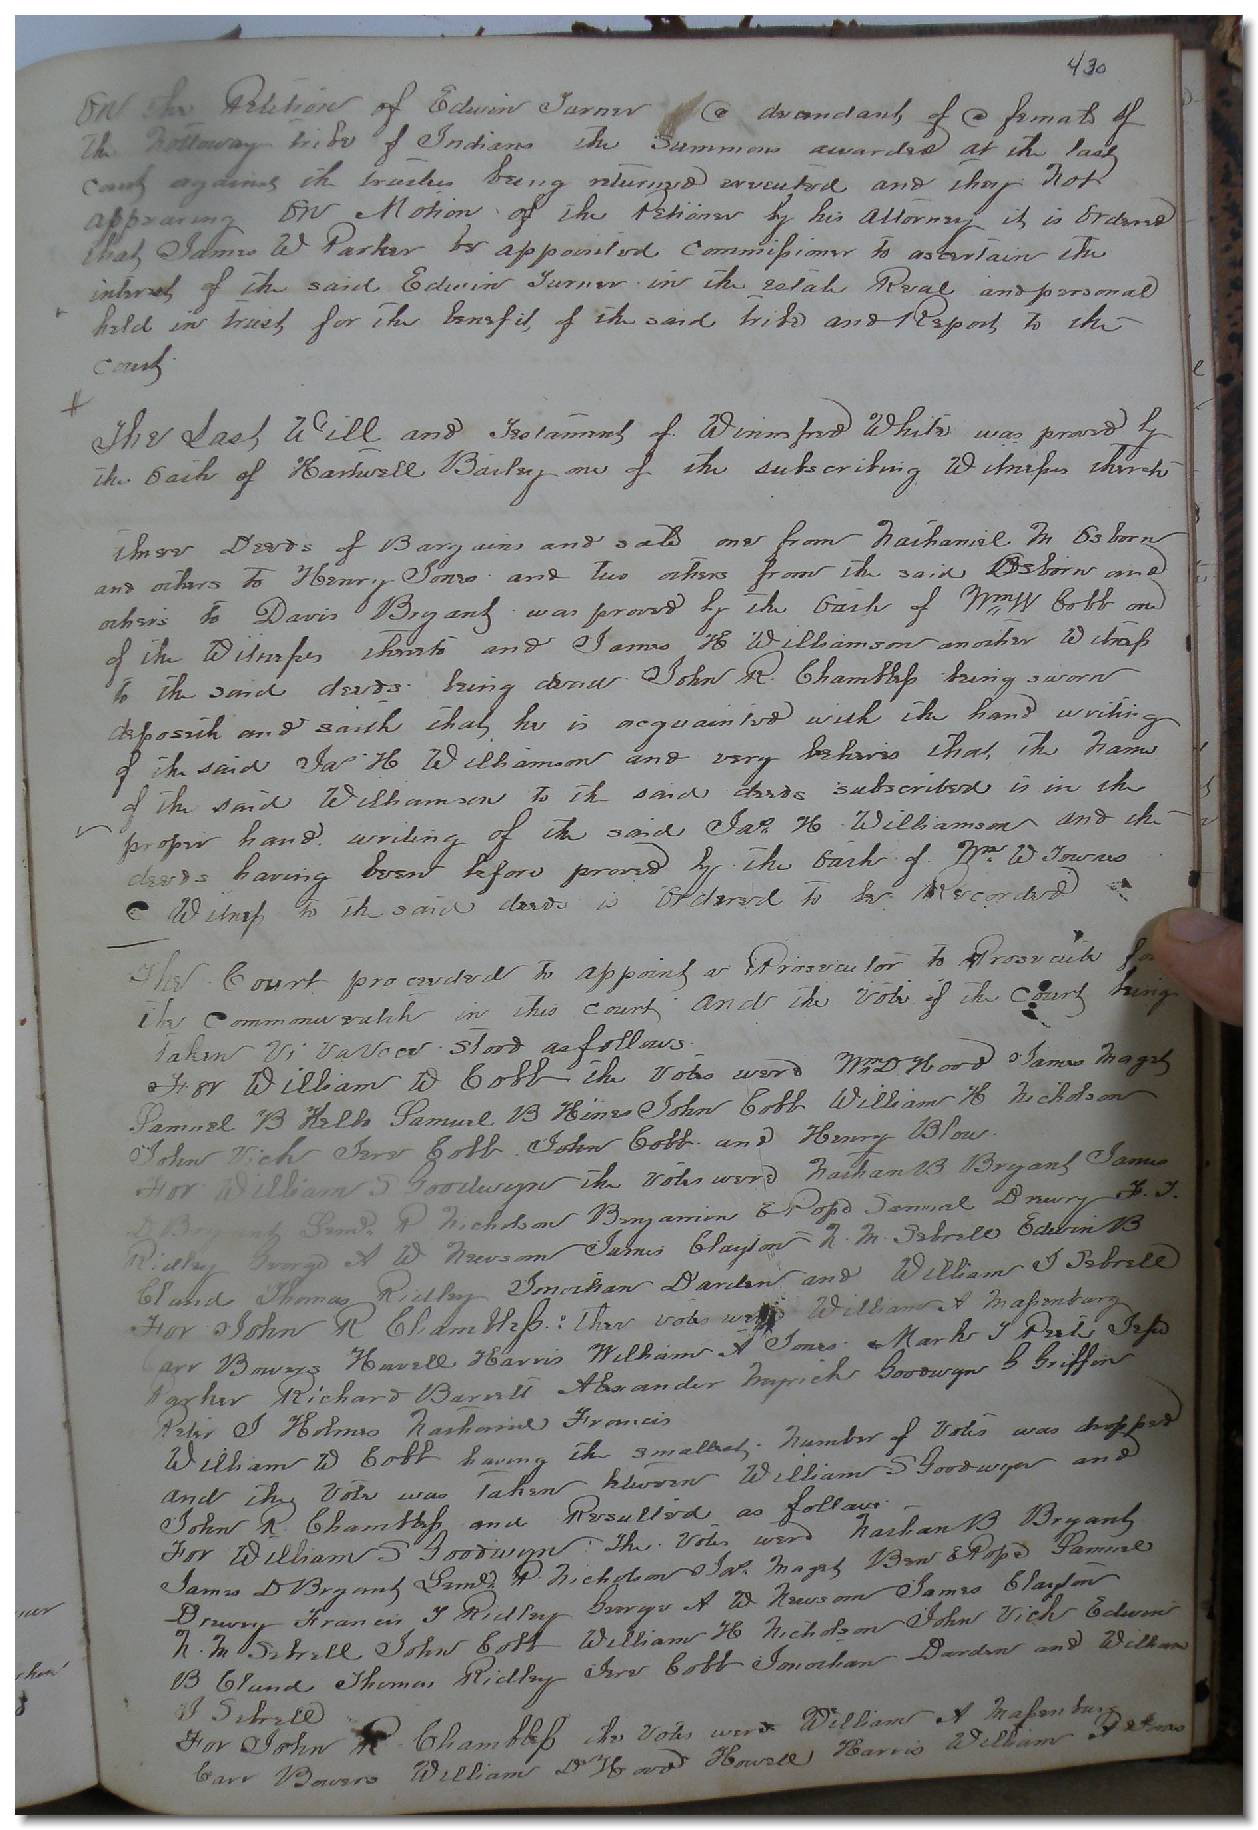 430
On the Petition of Edwin Turner a decendant of a female of
the Nottoway tribe of Indians the Summons awarded at the last
Court against the trustees being returned executed and they not
appearing On Motion of the Petioner by his Attorney it is Ordered
that James W Parker be appointed Commissioner to ascertain the
interest of the said Edwin Turner in the estate Real and personal
held in trust for the benefit of the said tribe and Report to the
Court
The Last Will and Testament of Winnefred White was proved by
the Oath of Hartwell Bailey one of the subscribing Witnesses thereto
three Deeds of Bargain and sale one from Nathaniel M Osborn
and others to Henry Jones and two others from the said Osborn and
others to Davis Bryant was proved by the Oath of Wm W Cobb one
of the Witnesses thereto and James H Williamson another Witness
to the said deeds being dead John R. Chambless being sworn
deposeth and saith that he is acquainted with the hand writing
of the said Jas H Williamson and very believes that the name
of the said Williamson to the said deeds subscribed is in the
proper hand writing of the said Jas. H Williamson and the
deeds having been before proved by the Oath of Wm. W Townes
a Witness to the said deeds is Ordered to be Recorded
The Court proceeded to appoint a Prosecutor to Prosecute for
the Commonwealth in this Court and the Vote of the Court being
taken Vi Va Voce stood as follows
For William W Cobb the Votes were Wm D Hood James Maget
Samuel B Kello Samuel B Hines John Cobb William H Nicholson
John Vick Jere Cobb John Cobb and Henry Blow
For William S Goodwyn the Votes were Nathan B Bryant James
D Bryant R Nicholson Benjamin E Pope Samuel Drewry F. T.
Ridley George A W Newsom James Clayton N. M. Sebrell Edwin B
Claud Thomas Ridley Jonothan Darden and William J Sebrell
For John R Chambless: thee votes were William A Massenburg
Carr Bowers Howell Harris William A Jones Mark T Peete
Parker Richard Barrett Alexander Myrick Goodwyn G Griffin
Peter J Holmes Nathaniel Francis
William W Cobb having the smallest Number of Votes was dropped
and the Vote was taken between William S Goodwyn and
John R. Chambless and Resulted as follows
For William S Goodwyn The Votes were Nathan B Bryant
James D Bryant R. Nicholson Jas. Maget Ben E Pope Samuel
Drewry Francis T Ridley George A W Newsom James Clayton
N. M Sebrell John Cobb William H Nicholson John Vick Edwin
B Claud Thomas Ridley Jere Cobb Jonothan Darden and William
J Sebrell
For John R Chambless the Votes were William A Massenburg
Carr Bowers William D Hood Howell Harris William A Jones